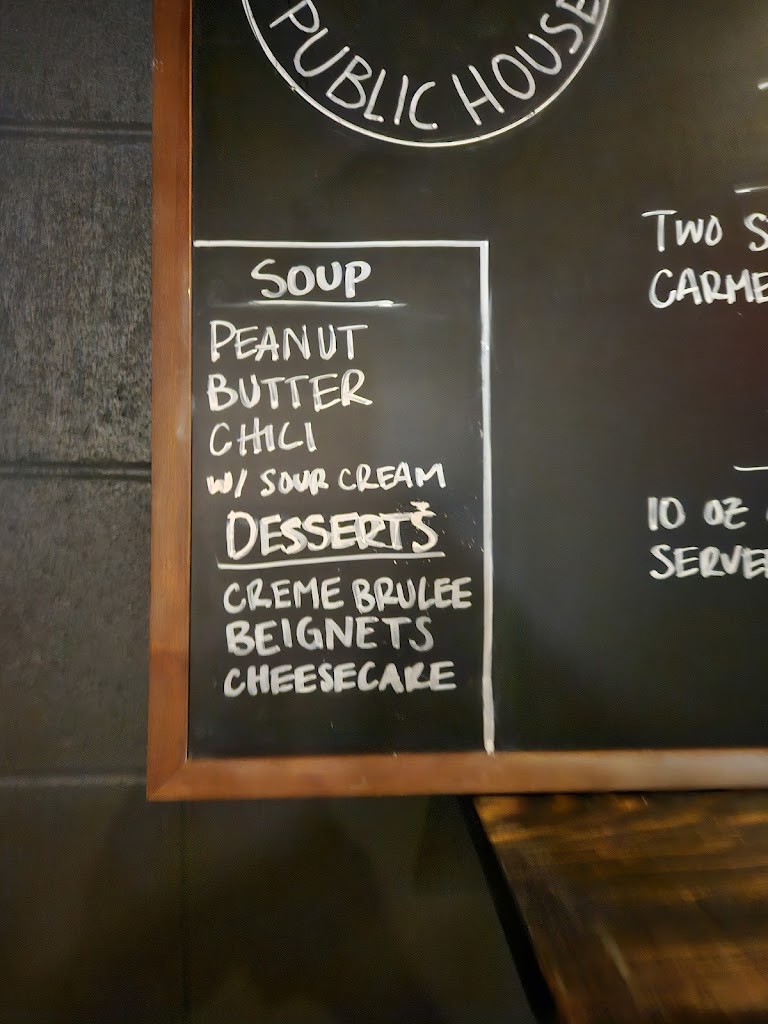 PUBLIC HOUSE
SOUP
PEANUT
BUTTER
CHILI
W/ SOUR CREAM
DESSERTS
CREME BRULEE
BEIGNETS
CHEESECAKE
TWO
CARME
10 OZ
SERVE